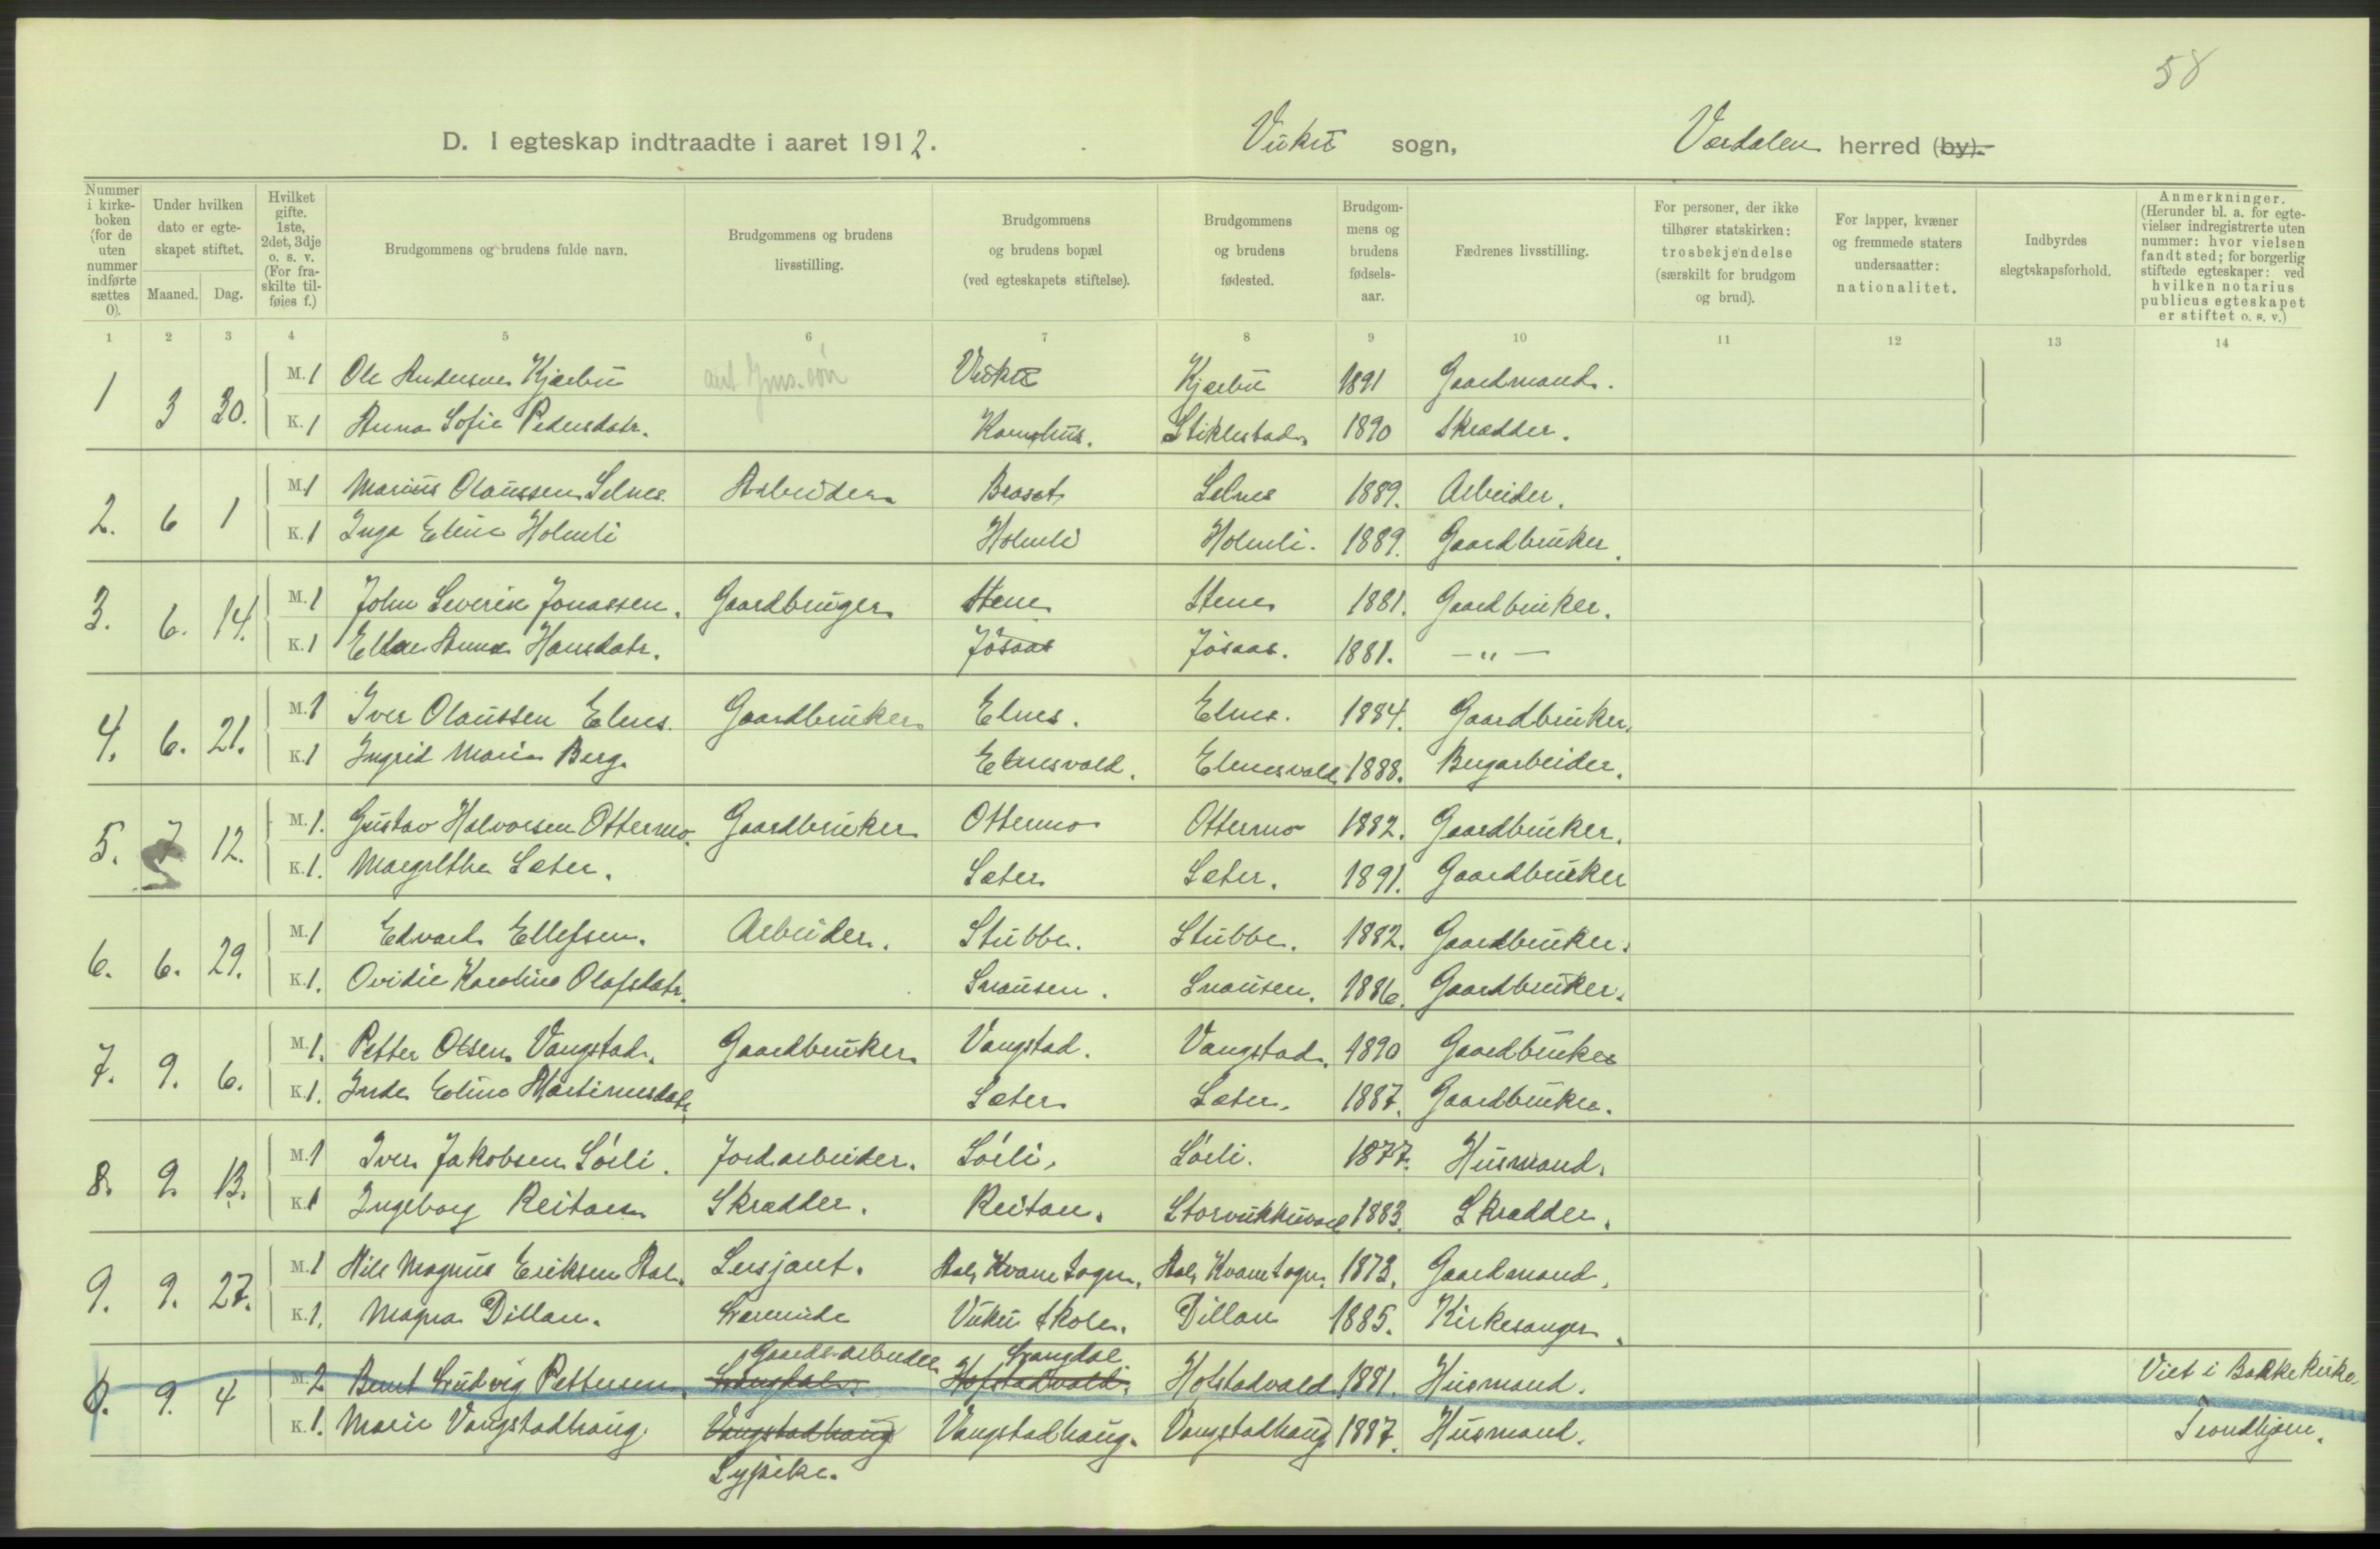 58
D. I egteskap indtraadte i aaret 1912. Vuku sogn, Værdalen herred (by).
Nummer i kirkeboken (for de uten nummer indførte sættes 0).
Under hvilken dato er egteskapet stiftet.
Maaned. Dag.
Hvilket gifte. 1ste, 2det, 3dje o. s. v. (For fraskilte tilføies f.)
Brudgommens og brudens fulde navn.
Brudgommens og brudens livsstilling.
Brudgommens og brudens bopæl (ved egteskapets stiftelse).
Brudgommens og brudens fødested.
Brudgommens og brudens fødselsaar.
Fædrenes livsstilling.
For personer, der ikke tilhører statskirken: trosbekjendelse (særskilt for brudgom og brud).
For lapper, kvæner og fremmede staters undersaatter: nationalitet.
Indbyrdes slegtskapsforhold.
Anmerkninger. (Herunder bl. a. for egtevielser indregistrerte uten nummer: hvor vielsen fandt sted; for borgerlig stiftede egteskaper: ved hvilken notarius publicus egteskapet er stiftet o. s. v.)
1 2 3 4 5 6 7 8 9 10 11 12 13 14
1 3 30. M. 1 Ole Andersen Kjærbu Vuku Kjærbu 1891 Gaardmand.
K. 1 Anna Sofie Pedersdatr. Karmhus. Stiklestad. 1890 Skrædder.
2. 6 1 M. 1 Marius Olaussen Selnes. Arbeider Braset Selnes 1889. Arbeider.
K. 1 Inga Eline Holmli Holmli Holmli. 1889. Gaardbruker.
3. 6. 14. M. 1 John Severin Jonassen. Gaardbruger Stene Stene 1881. Gaardbruker.
K. 1 Ellen Anna Hansdatr. Jøsaas Jøsaas. 1881. — „ —
4. 6. 21. M. 1 Iver Olaussen Elnes. Gaardbruker Elnes. Elnes. 1884. Gaardbruker.
K. 1 Ingrid Marie Berg. Elnesvald. Elnesvald. 1888. Bergarbeider.
5. 7 12. M. 1. Gustav Halvorsen Ottermo. Gaardbruker Ottermo Ottermo 1882. Gaardbruker.
K. 1. Margrethe Sæter. Sæter Sæter. 1891. Gaardbruker
6. 6. 29. M. 1 Edvard Ellefsen. Arbeider. Stubbe. Stubbe. 1882. Gaardbruker.
K. 1. Ovidie Karoline Olafsdatr. Snausen. Snausen. 1886. Gaardbruker.
7. 9. 6. M. 1. Petter Olsen Vangstad. Gaardbruker Vangstad. Vangstad. 1890 Gaardbruker
K. 1. Inde Eline Martinusdatr. Sæter Sæter. 1887. Gaardbruker.
8. 9. 13. M. 1 Iver Jakobsen Sørli. Jordarbeider. Sørli. Sørli. 1877. Husmand.
K. 1 Ingeborg Reitan Skrædder. Reitan. Storvukkuvald 1883. Skrædder.
9. 9. 27. M. 1 Nils Magnus Eriksen Aal. Sersjant. Aal, Kvam sogn. Aal, Kvam sogn. 1873. Gaardmand.
K. 1. Magna Dillan. Lærerinde Vuku skole. Dillan 1885. Kirkesanger.
Gaardsarbeider Langdal.
0. 9. 4 M. 2 Bernt Ludvig Pettersen. Langdal. Hofstadvald. Hofstadvald 1881. Husmand. Viet i Bakke kirke
K. 1. Marie Vangstadhaug. Vangstadhaug Vangstadhaug. Vangstadhaug 1887. Husmand. Trondhjem.
Sypike.